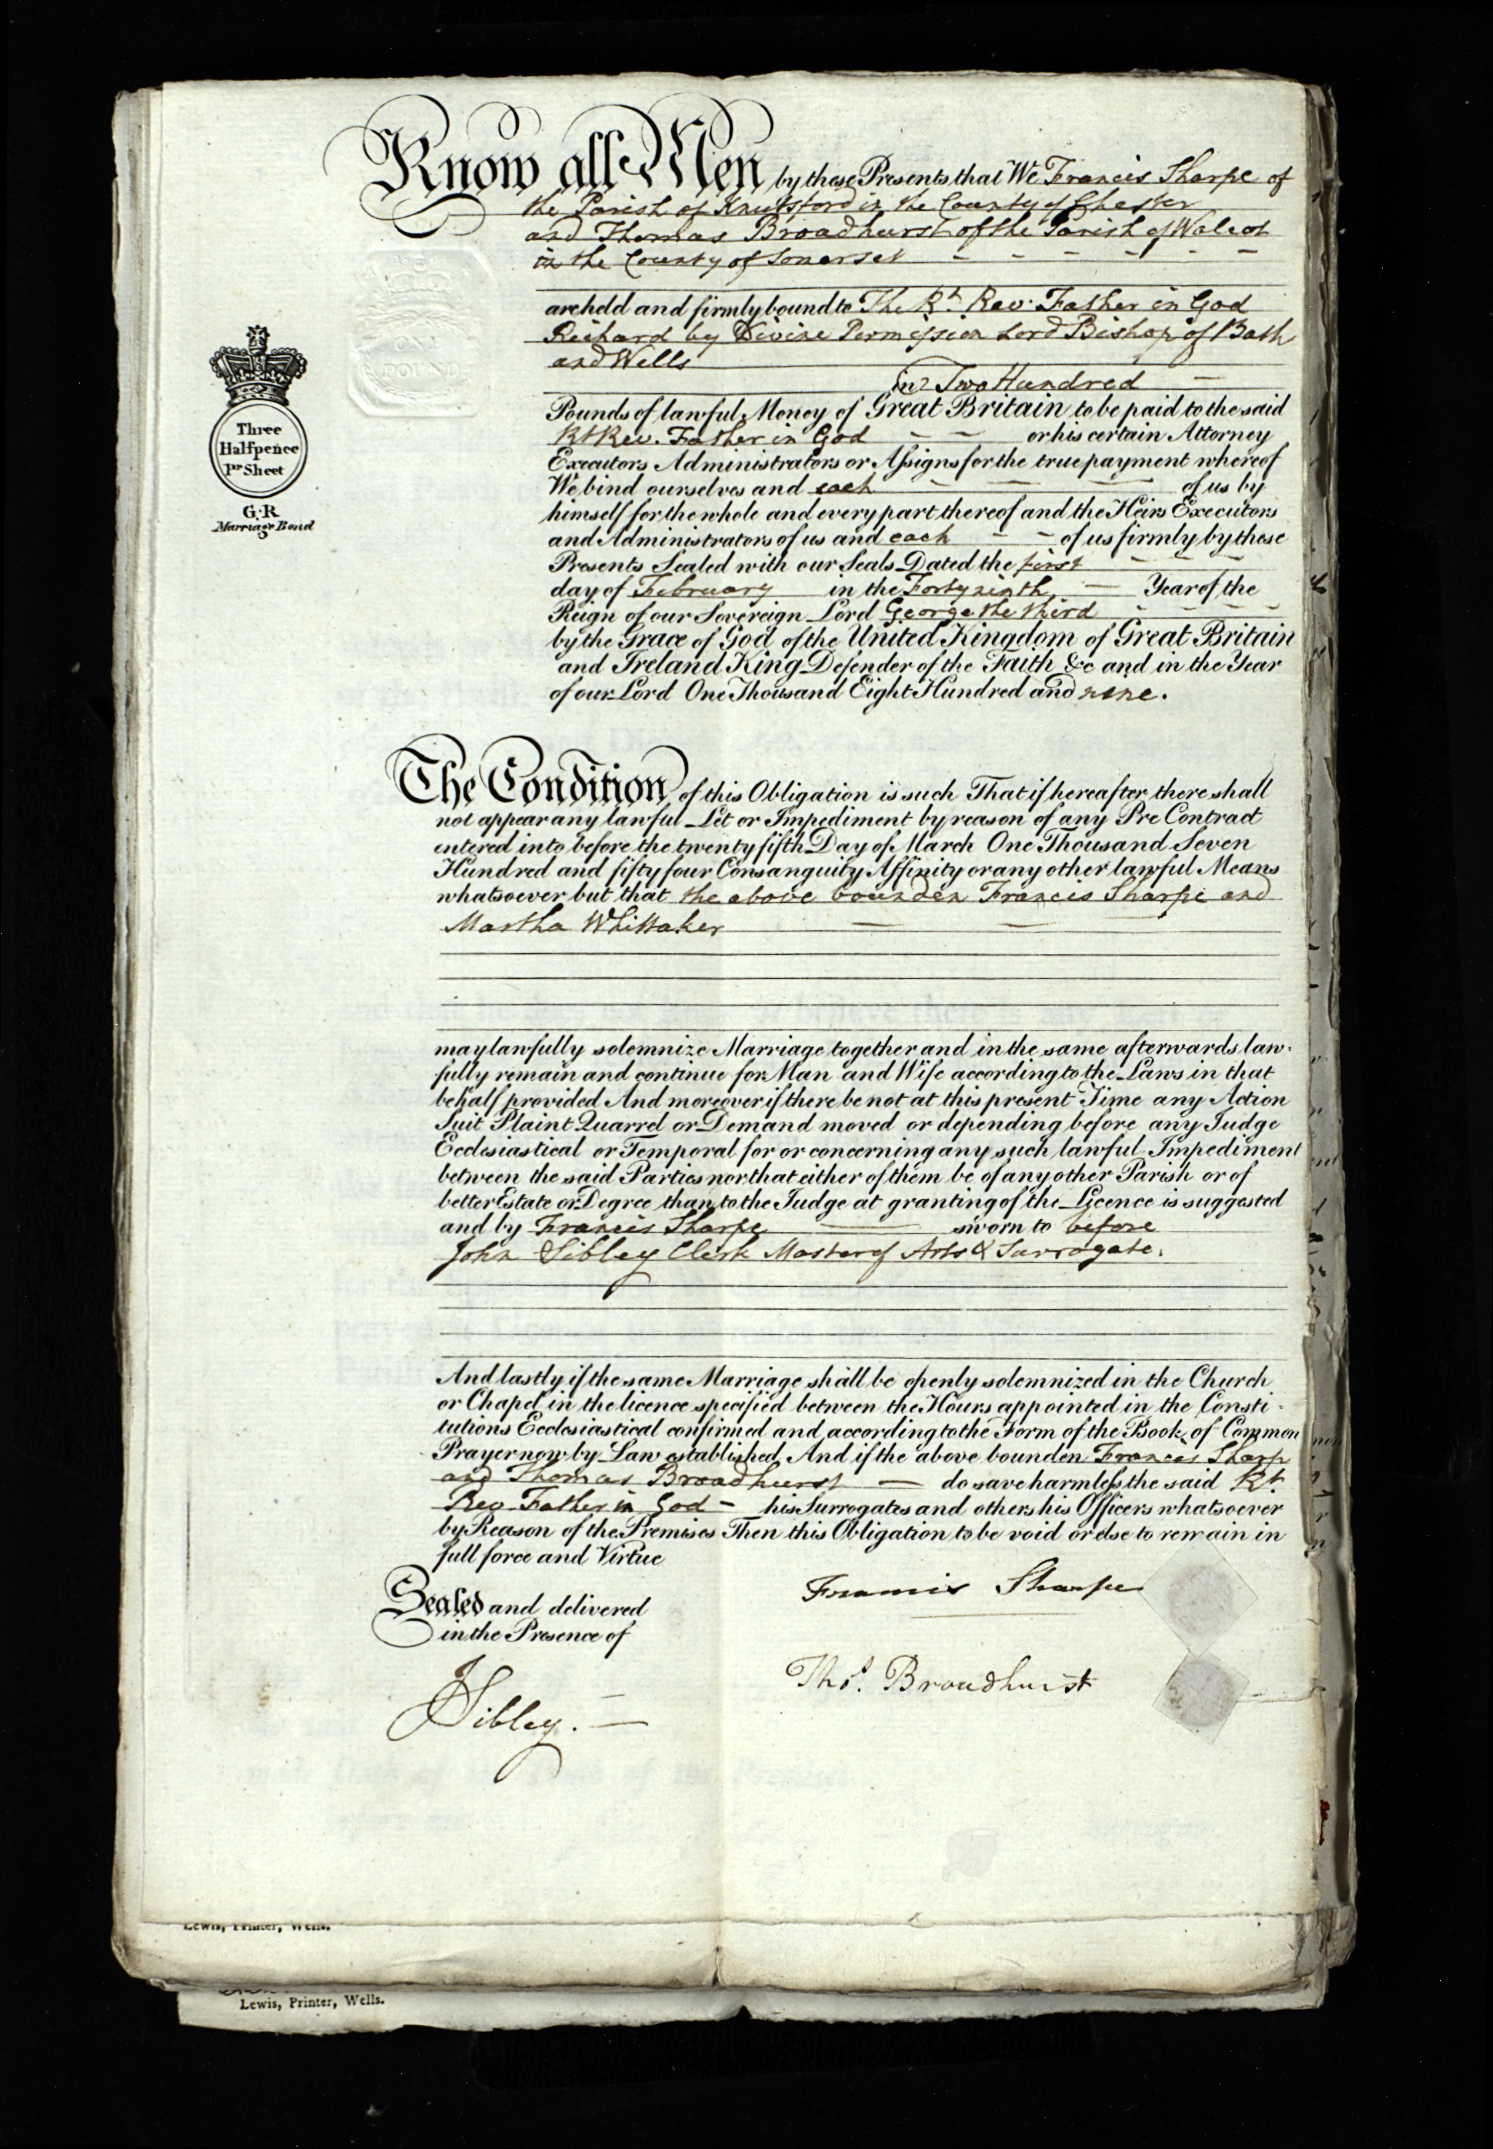 Know all Men by these Presents that We Francis Sharpe of
the Parish of Knutsford in the County of Chester
and Thomas Broadhurst of the Parish of Walcot
in the County of Somerset - - - - - -
are held and firmly bound to The Rt. Rev. Father in God
Richard by Divine Permission Lord Bishop of Bath
and Wells
in Two Hundred -
Pounds of lawful Money of Great Britain to be paid to the said
Rt Rev. Father in God - - or his certain Attorney
Executors Administrators or Assigns for the true payment whereof
We bind ourselves and each - - - of us by
himself for the whole and every part thereof and the Heirs Executors
and Administrators of us and each - - of us firmly by these
Presents Sealed with our Seals Dated the first - - -
day of February in the Forty ninth - Year of the
Reign of our Sovereign Lord George the third - - - -
by the Grace of God of the United Kingdom of Great Britain
and Ireland King Defender of the Faith &c and in the Year
of our Lord One Thousand Eight Hundred and nine.
ONE
POUND
Three
Halfpence
Pr Sheet
G.R
Marriage Bond
The Condition of this Obligation is such That if hereafter there shall
not appear any lawful Let or Impediment by reason of any Pre Contract
entered into before the twenty fifth Day of March One Thousand Seven
Hundred and fifty four Consanguity Affinity or any other lawful Means
whatsoever but that the above bounden Francis Sharpe and
Martha Whittaker - -
may lawfully solemnize Marriage together and in the same afterwards law-
fully remain and continue for Man and Wife according to the Laws in that
behalf provided And moreover if there be not at this present Time any Action
Suit Plaint Quarrel or Demand moved or depending before any Judge
Ecclesiastical or Temporal for or concerning any such lawful Impediment
between the said Parties nor that either of them be of any other Parish or of
better Estate or Degree than to the Judge at granting of the Licence is suggested
and by Francis Sharpe - sworn to before
John Sibley Clerk Master of Arts & Surrogate.
And lastly if the same Marriage shall be openly solemnized in the Church
or Chapel in the licence specified between the Hours appointed in the Consti-
tutions Ecclesiastical confirmed and according to the Form of the Book of Common
Prayer now by Law established And if the above bounden Francis Sharp
and Thomas Broadhurst - do save harmless the said Rt.
Rev Father in God - his Surrogates and others his Officers whatsoever
by Reason of the Premises Then this Obligation to be void or else to remain in
full force and Virtue
Sealed and delivered
in the Presence of
Francis Sharpe
Thos. Broadhurst
J Sibley. -
Lewis, Printer, Wells.
Lewis, Printer, Wells.